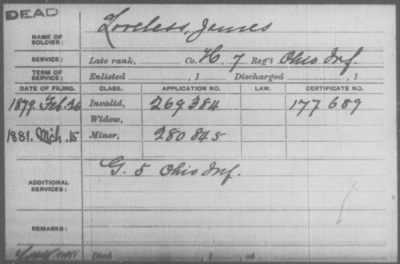 DEAD
NAME OF SOLDIER: Loveless, James
SERVICE: Late rank, Co. H, 7 Reg't Ohio Inf.
TERM OF SERVICE: Enlisted , 1 Discharged , 1
DATE OF FILING. CLASS. APPLICATION NO. LAW. CERTIFICATE NO.
1879. Feb. 26 Invalid, 269384 177689
Widow,
1881. Mch. 15 Minor, 280845
ADDITIONAL SERVICES: G. 5 Ohio Inf.
REMARKS:
Died , 1 at